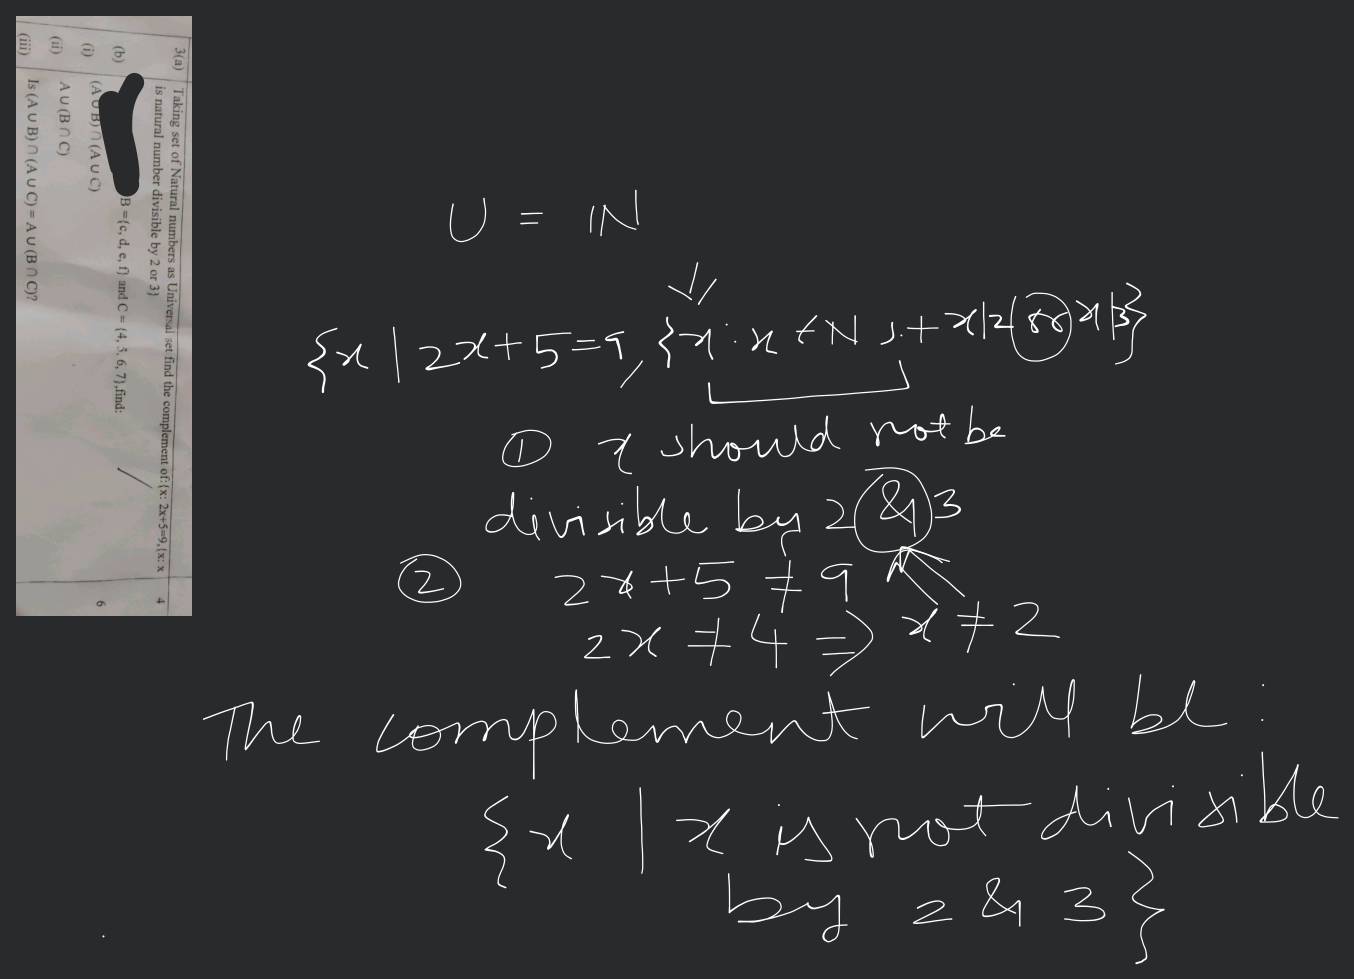 3(a) Taking set of Natural numbers as Universal set find the complement of:{x: 2x+5=9,{x: x 4
is natural number divisible by 2 or 3}
(b) B ={c, d, e, f} and C = {4, 5, 6, 7},find: 6
(i) (A ∪ B) ∩ (A ∪ C)
(ii) A ∪ (B ∩ C)
(iii) Is (A ∪ B) ∩ (A ∪ C) = A ∪ (B ∩ C)?
U = ℕ
{x | 2x+5=9, {x : x ∈ N s.t x|2 or x|3}
① x should not be
divisible by 2 & 3
② 2x+5 ≠ 9
2x ≠ 4 ⇒ x ≠ 2
The complement will be :
{x | x is not divisible
by 2 & 3}